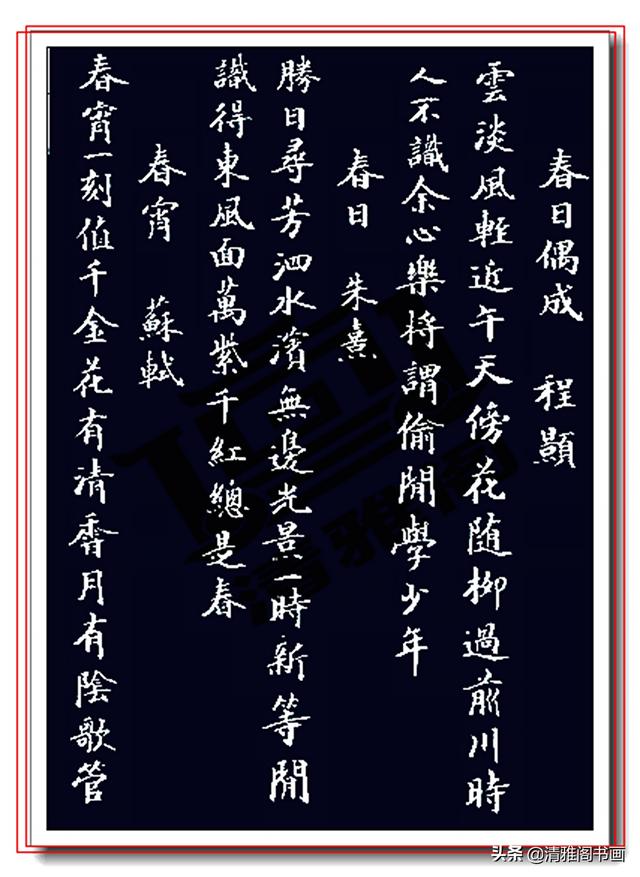 春日偶成 程顥
雲淡風輕近午天傍花随柳過前川時
人不識余心樂将謂偷閒學少年
春日 朱熹
勝日尋芳泗水濱無邊光景一時新等閒
識得東風面萬紫千紅總是春
春宵 蘇軾
春宵一刻值千金花有清香月有陰歌管
清雅阁
头条@清雅阁书画